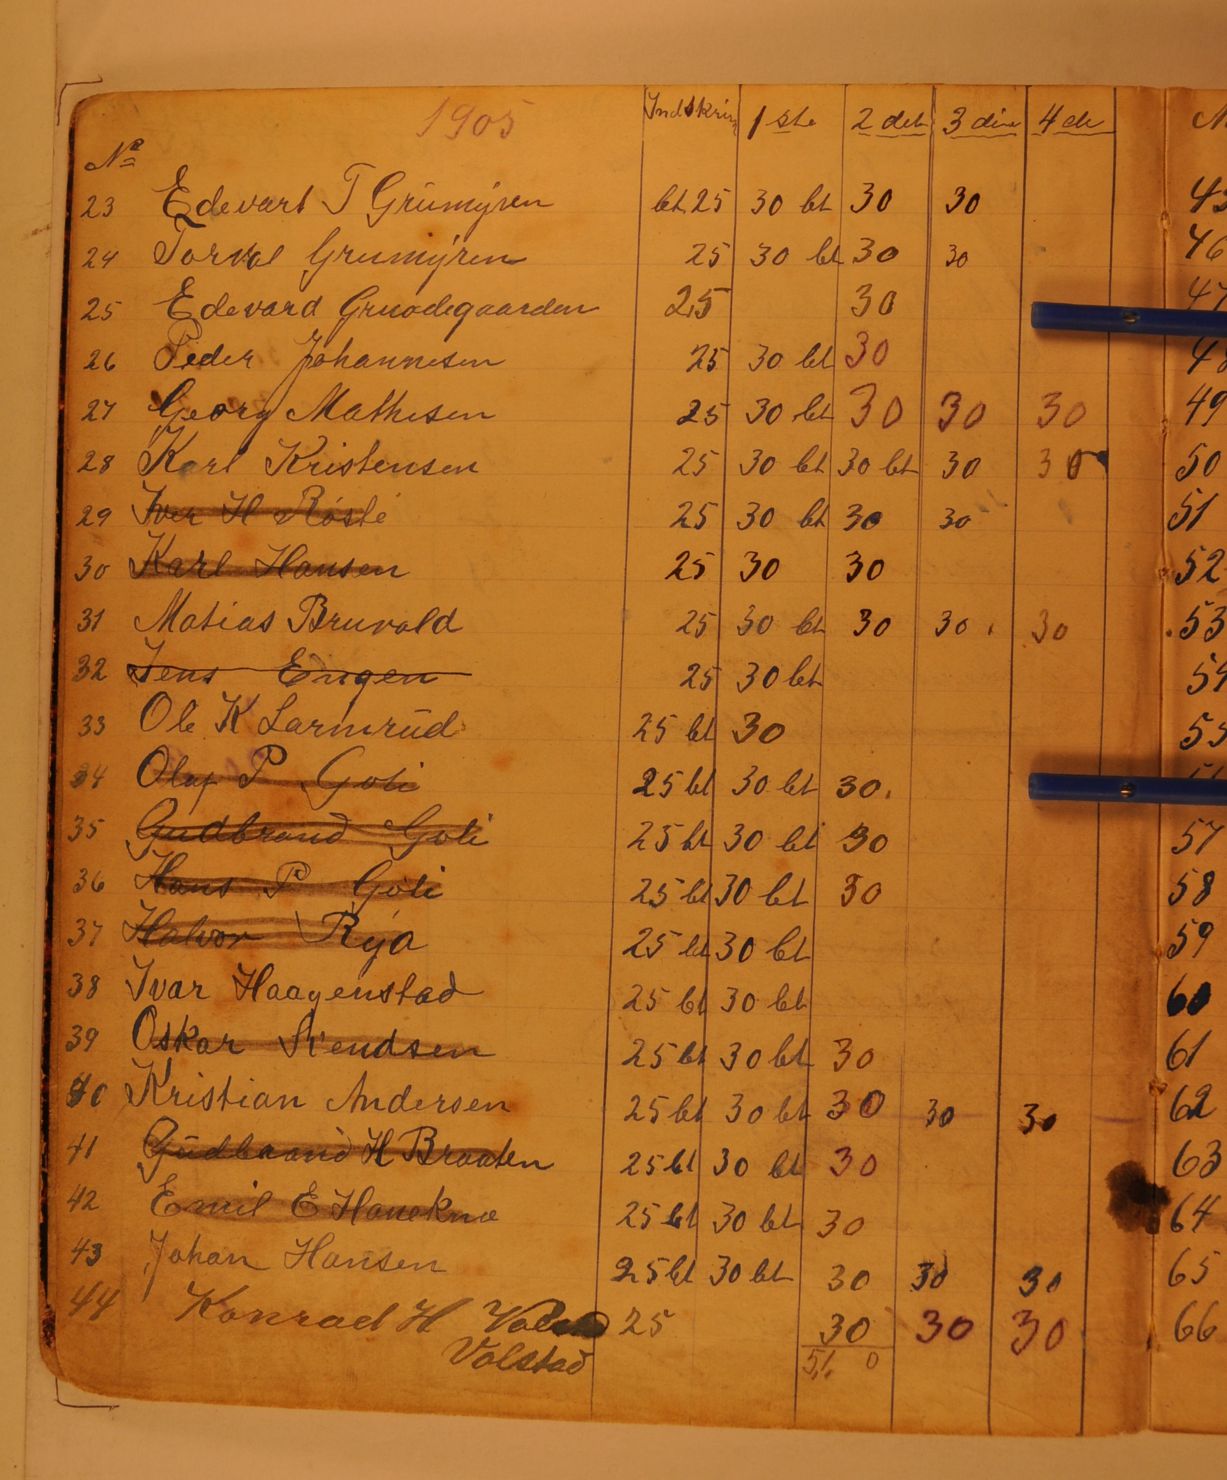 1905 Indskriv 1ste 2det 3die 4de
No
23 Edevart T Grümÿren bt 25 30 bt 30 30
24 Torval Grümÿren 25 30 bt 30 30
25 Edevard Gruodegaarden 25 30
26 Peder Johannesen 25 30 bt 30
27 Georg Mathisen 25 30 bt 30 30 30
28 Karl Kristensen 25 30 bt 30 bt 30 30
29 Iver H Røste 25 30 bt 30 30
30 Karl Hansen 25 30 30
31 Matias Bruvold 25 30 bt 30 30 30
32 Jens Engen 25 30 bt
33 Ole K Larmrüd 25 bt 30
34 Olaf P Goli 25 bt 30 bt 30
35 Gudbrand Goli 25 bt 30 bt 30
36 Hans P Goli 25 bt 30 bt 30
37 Halvor Rya 25 bt 30 bt
38 Ivar Haagenstad 25 bt 30 bt
39 Oskar Svendsen 25 bt 30 bt 30
40 Kristian Andersen 25 bt 30 bt 30 30 30
41 Güdbrand H Braaten 25 bt 30 bt 30
42 Emil E Haneknæ 25 bt 30 bt 30
43 Johan Hansen 25 bt 30 bt 30 30 30
44 Konrad H 25 30 30 30
Volstad 51, 0
46
47
49
50
51
52
53
57
58
59
60
61
62
63
64
65
66